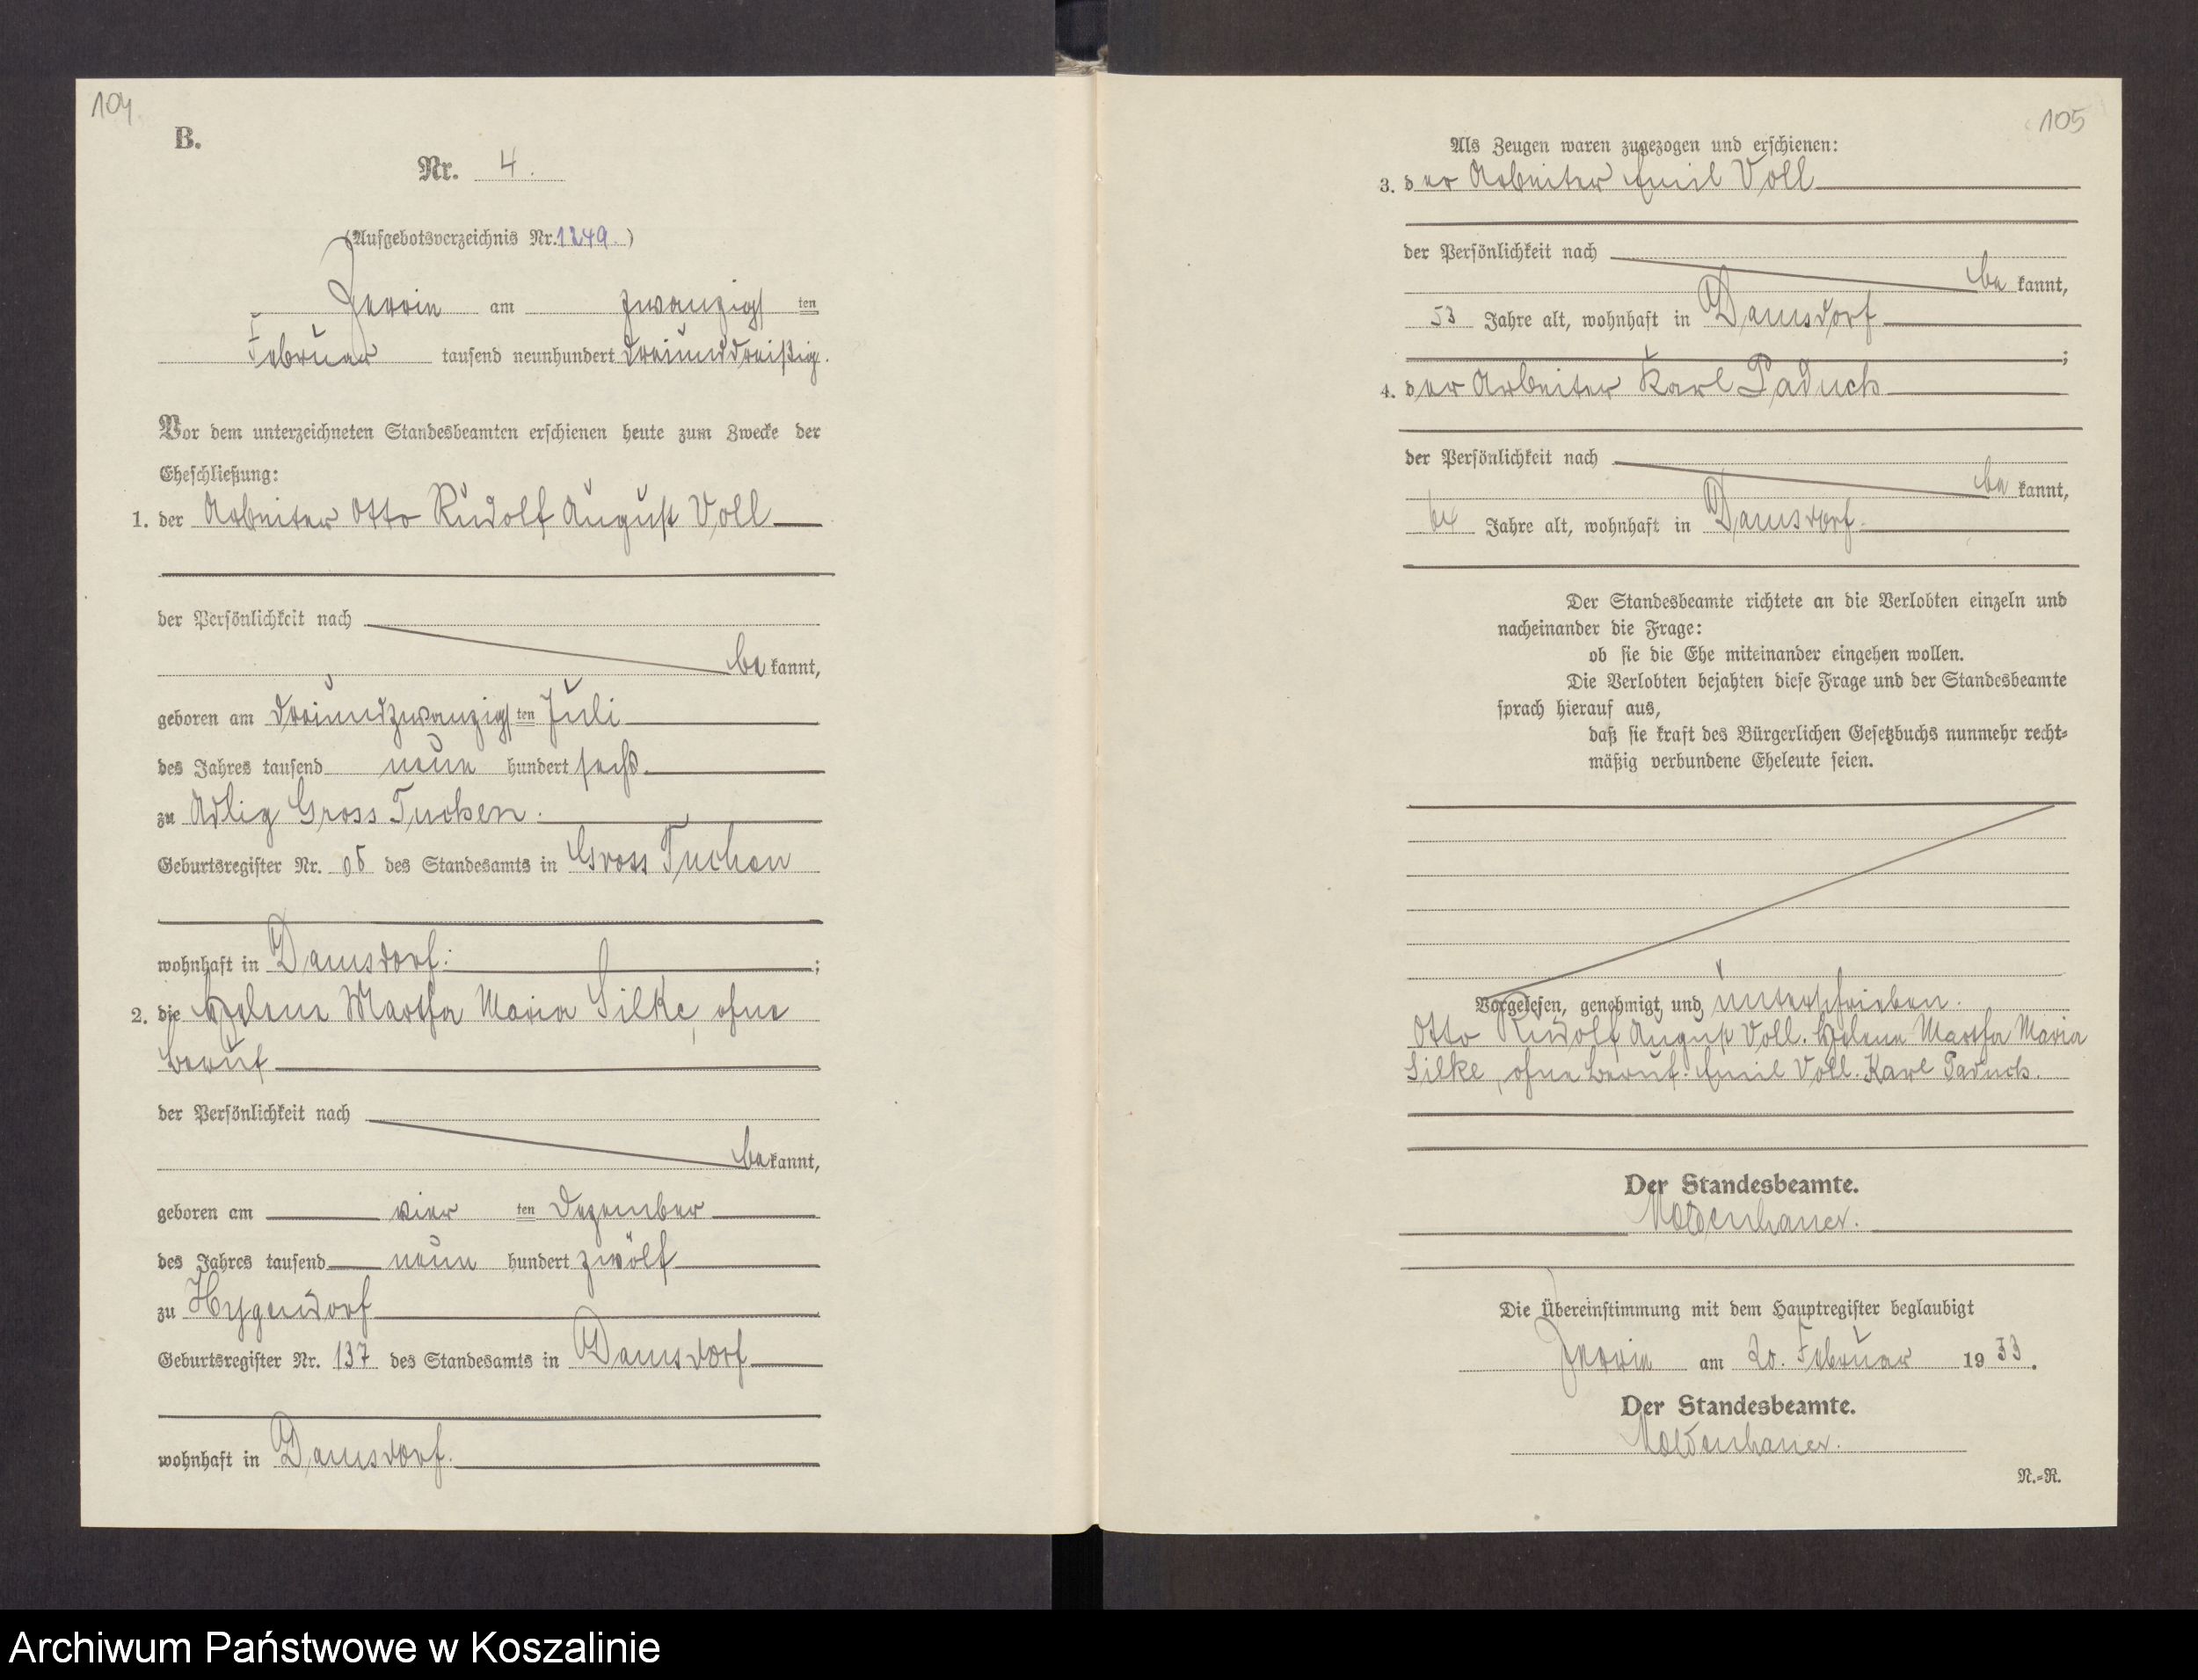 104
B.
Nr. 4.
(Aufgebotsverzeichnis Nr. 1249.)
Jerrin am zwanzigsten
Februar tausend neunhundert dreiunddreißig.
Vor dem unterzeichneten Standesbeamten erschienen heute zum Zwecke der
Eheschließung:
1. der Arbeiter Otto Rudolf August Voll
der Persönlichkeit nach
bekannt,
geboren am dreiundzwanzigsten Juli
des Jahres tausend neun hundert sechs
zu Adlig Gross Tuchen.
Geburtsregister Nr. des Standesamts in Gross Tuchen
wohnhaft in Damsdorf;
2. die Helene Martha Maria Silke, ohne
Beruf
der Persönlichkeit nach
bekannt,
geboren am vierten Dezember
des Jahres tausend neun hundert zwölf
zu Hygendorf
Geburtsregister Nr. 137 des Standesamts in Damsdorf
wohnhaft in Damsdorf.
105
Als Zeugen waren zugezogen und erschienen:
3. der Arbeiter Emil Voll
der Persönlichkeit nach
bekannt,
53 Jahre alt, wohnhaft in Damsdorf
;
4. der Arbeiter Karl Paduch
der Persönlichkeit nach
bekannt,
64 Jahre alt, wohnhaft in Damsdorf.
Der Standesbeamte richtete an die Verlobten einzeln und
nacheinander die Frage:
ob sie die Ehe miteinander eingehen wollen.
Die Verlobten bejahten diese Frage und der Standesbeamte
sprach hierauf aus,
daß sie kraft des Bürgerlichen Gesetzbuchs nunmehr recht-
mäßig verbundene Eheleute seien.
Vorgelesen, genehmigt und unterschrieben.
Otto Rudolf August Voll. Helene Martha Maria
Silke, ohne Beruf. Emil Voll. Karl Paduch.
Der Standesbeamte.
Moldenhauer.
Die Übereinstimmung mit dem Hauptregister beglaubigt
Jerrin am 20. Februar 1933.
Der Standesbeamte.
Moldenhauer.
N.-R.
Archiwum Państwowe w Koszalinie